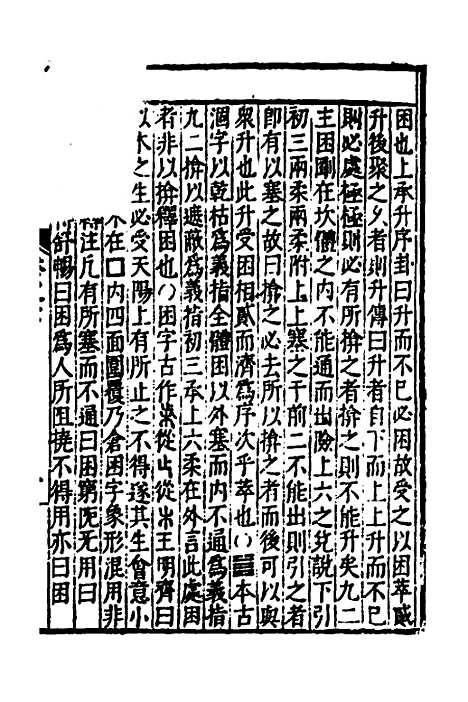 困也上承升序卦曰升而不已必困故受之以困萃盛
升後聚之乆者則升傳曰升者自下而上上升而不已
則必處極極則必有所揜之者揜之則不能升矣九二
主困剛在坎體之内不能通而出險上六之兌說下引
初三兩柔兩柔附上上塞之于前二不能出則引之者
卽有以塞之故曰揜之必去所以揜之者而後可以與
衆升也此升受困相貳而濟爲序次乎萃也〇䷮本古
涸字以乾枯爲義指全體困以外塞而内不通爲義指
九二揜以遮蔽爲義指初三承上六柔在外言此處困
者非以揜釋困也〇困字古作朱從止從木王明齊曰
以木之生必受天陽上有所止之不得遂其生會意小
在口内四面圍覆乃倉困字象形混用非
注凡有所塞而不通曰困窮旣无用曰
舒暢曰困爲人所阻撓不得用亦曰困